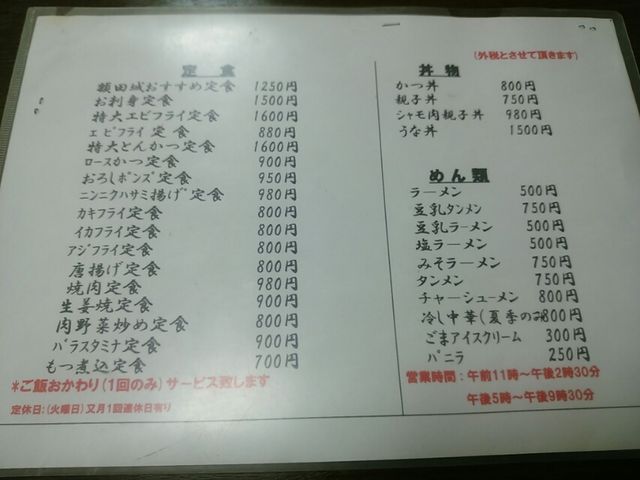 (外税とさせて頂きます)
定食
額田城おすすめ定食 1250円
お刺身定食 1500円
特大エビフライ定食 1600円
エビフライ定食 880円
特大とんかつ定食 1600円
ロースかつ定食 900円
おろしポンズ定食 950円
ニンニクハサミ揚げ定食 980円
カキフライ定食 800円
イカフライ定食 800円
アジフライ定食 800円
唐揚げ定食 800円
焼肉定食 980円
生姜焼定食 900円
肉野菜炒め定食 800円
バラスタミナ定食 900円
もつ煮込定食 700円
*ご飯おかわり(1回のみ)サービス致します
定休日:(火曜日)又月1回連休日有り
丼物
かつ丼 800円
親子丼 750円
シャモ肉親子丼 980円
うな丼 1500円
めん類
ラーメン 500円
豆乳タンメン 750円
豆乳ラーメン 500円
塩ラーメン 500円
みそラーメン 750円
タンメン 750円
チャーシューメン 800円
冷し中華(夏季のみ 800円
ごまアイスクリーム 300円
バニラ 250円
営業時間:午前11時~午後2時30分
午後5時~午後9時30分